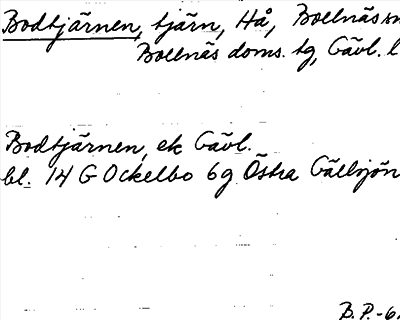 Bodtjärnen, tjärn, Hå, Bollnäs sn
Bollnäs doms. tg, Gävl. l
Bodtjärnen, ek Gävl.
bl. 14 G Ockelbo 6g Östra Gällsjön
B.P.-6